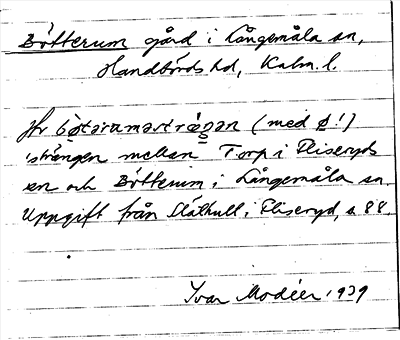 Bötterum gård i Långemåla sn,
Handbörds hd, Kalm. l.
Hr bøtarumastræŋan (med ø!)
'strängen mellan Torp i Fliseryds
sn och Bötterum i Långemåla sn.
Uppgift från Stålhult i Fliseryd, s. 88.
Ivar Modéer 1939